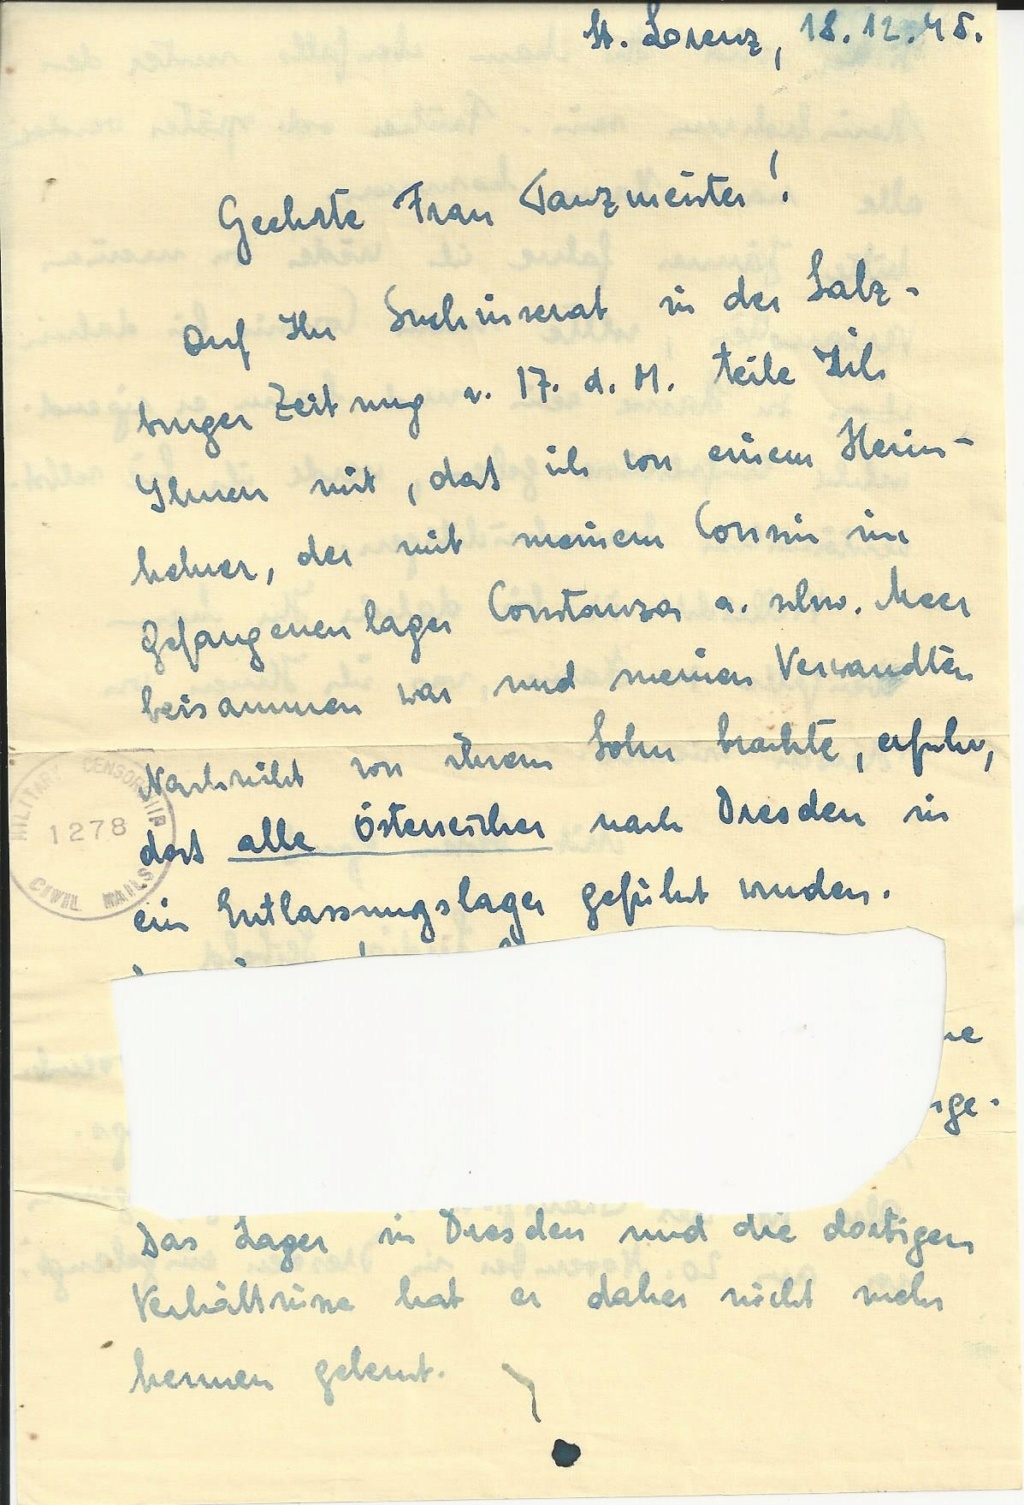 St. Lorenz, 18.12.45.
Geehrte Frau Tanzmeister!
Auf Ihr Suchinserat in der Salz-
burger Zeitung v. 17. d. M. teile ich
Ihnen mit, daß ich von einem Heim-
kehrer, der mit meinem Cousin im
Gefangenenlager Constanza a. schw. Meer
beisammen war und meinen Verwandten
Nachricht von ihrem Sohn brachte, erfuhr,
daß alle Österreicher nach Dresden in
ein Entlassungslager geführt wurden.
Das Lager in Dresden und die dortigen
Verhältnisse hat er daher nicht mehr
kennen gelernt.
MILITARY CENSORSHIP
1278
CIVIL MAILS